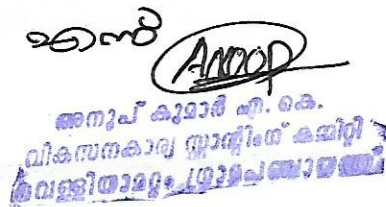 എന്ന്
ANOOP
അനൂപ് കുമാർ എ. കെ.
വികസനകാര്യ സ്റ്റാന്റിംഗ് കമ്മിറ്റി
വെള്ളിയാമറ്റം ഗ്രാമപഞ്ചായത്ത്